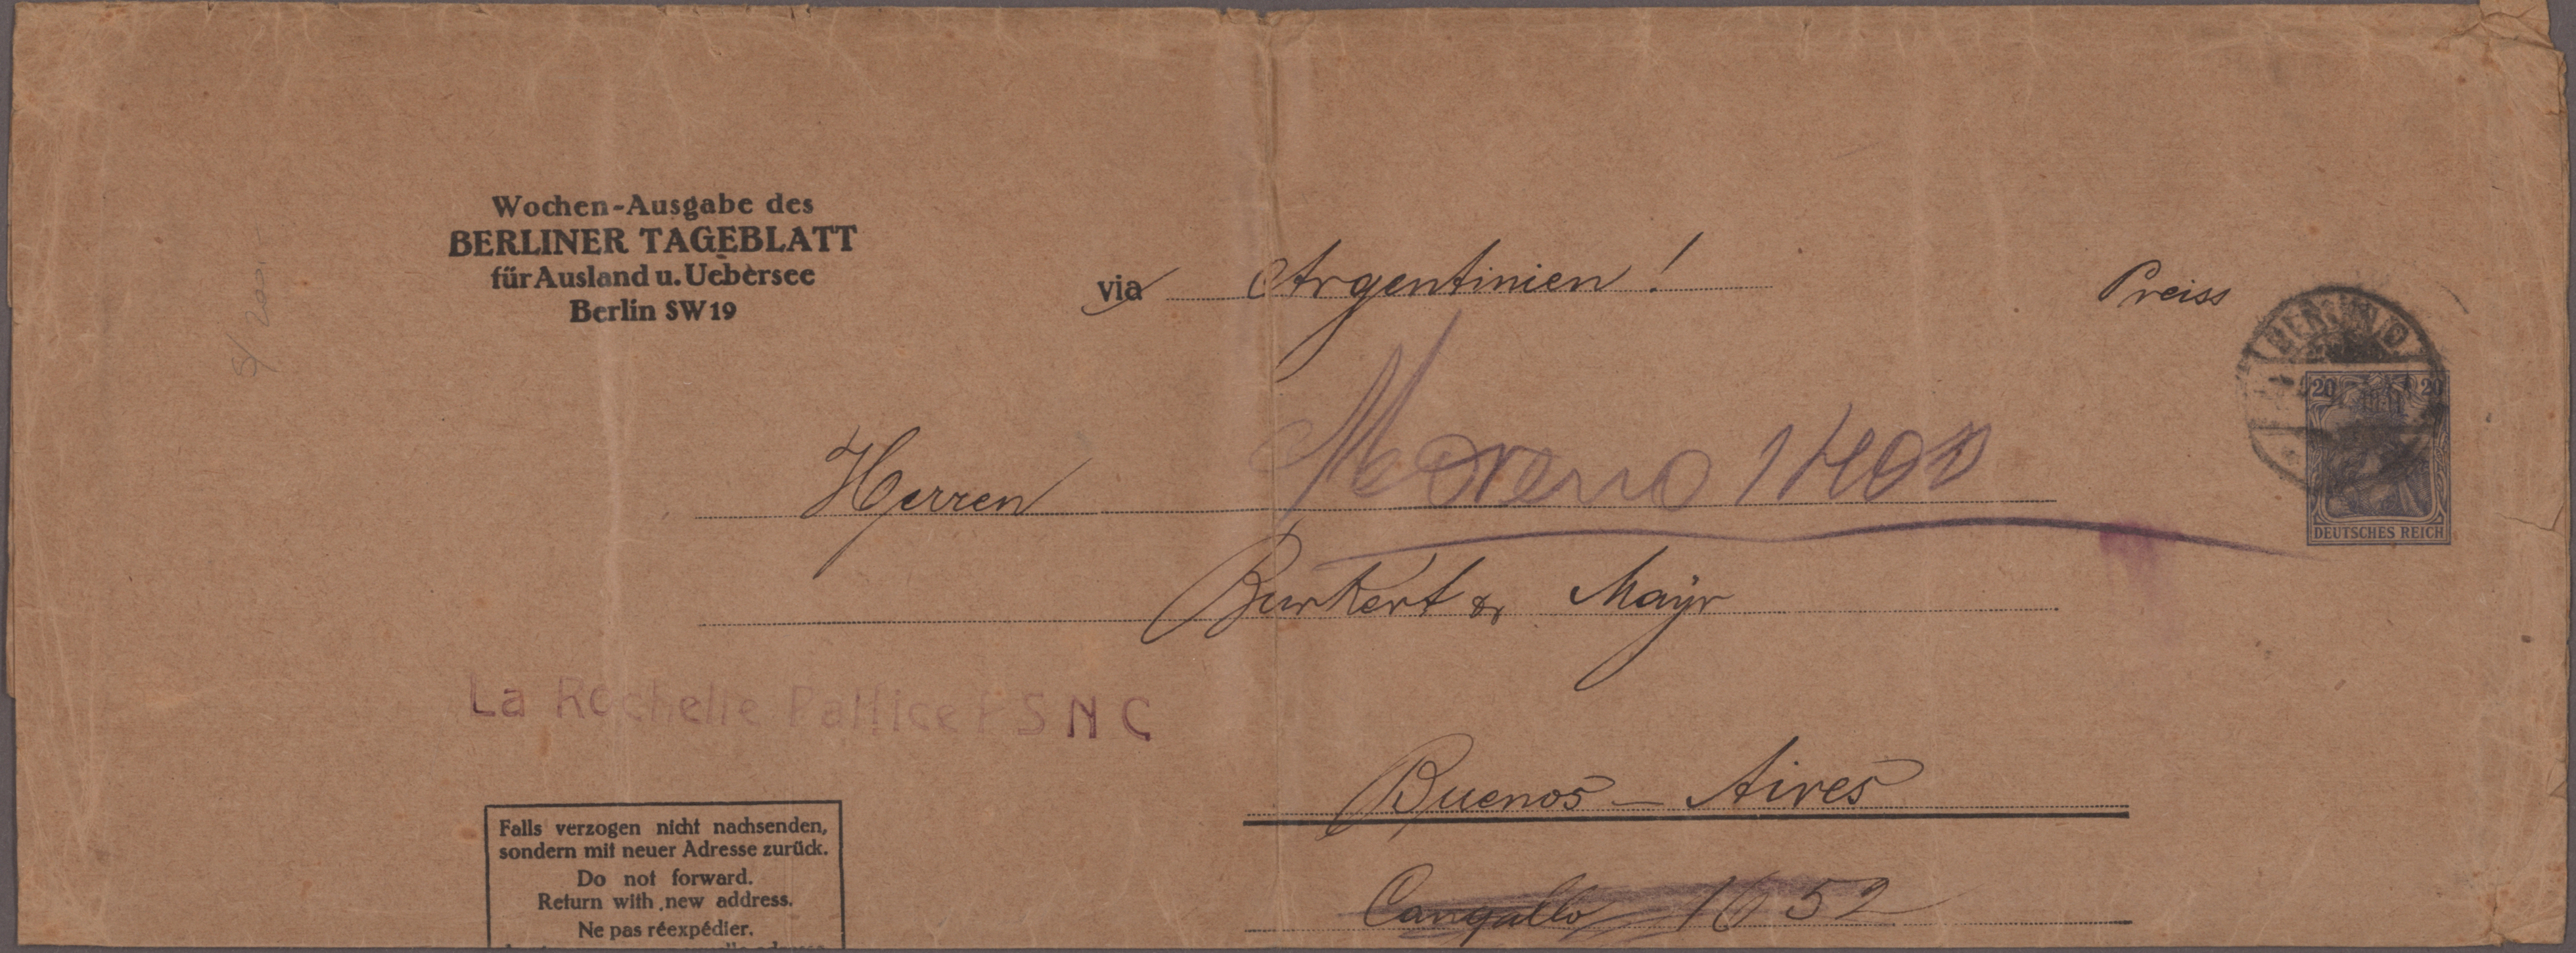 Wochen-Ausgabe des
BERLINER TAGEBLATT
für Ausland u. Uebersee
Berlin SW 19
via Argentinien!
Preiss
20 20
DEUTSCHES REICH
Moreno
Herren
Burkert & Mayr
La Rochelle Pallice PSNC
Buenos-Aires
Cangallo 1652
Falls verzogen nicht nachsenden,
sondern mit neuer Adresse zurück.
Do not forward.
Return with new address.
Ne pas réexpédier.